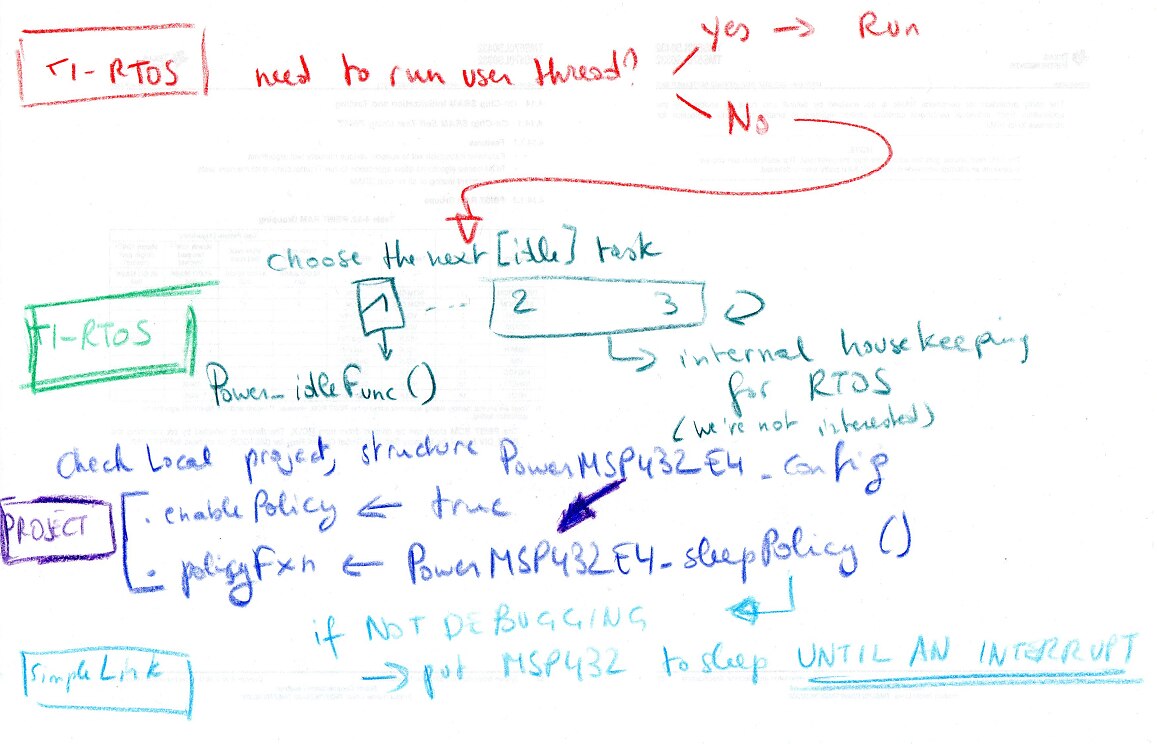 yes → Run
TI-RTOS need to run user thread?
No
choose the next [idle] task
1 ... 2 3
TI-RTOS
internal housekeeping
Power_idleFunc() for RTOS
(we're not interested)
Check Local project, structure PowerMSP432E4_config
PROJECT
. enablePolicy ← true
. policyFxn ← PowerMSP432E4_sleepPolicy()
if NOT DEBUGGING
SimpleLink
→ put MSP432 to sleep UNTIL AN INTERRUPT